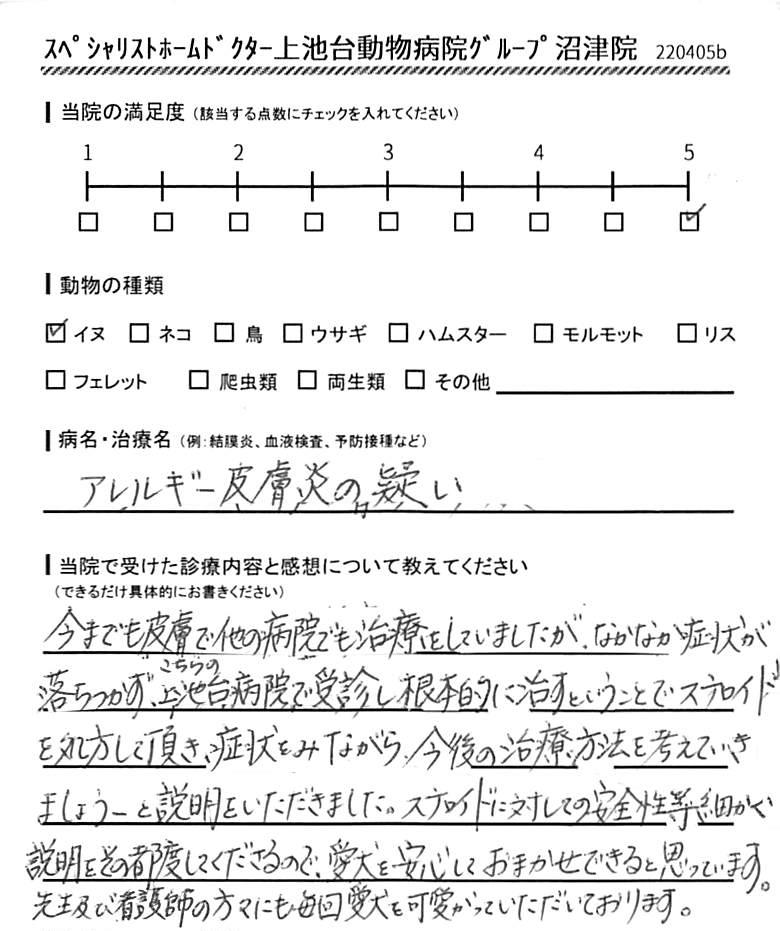 スペシャリストホームドクター上池台動物病院グループ 沼津院 220405b
当院の満足度（該当する点数にチェックを入れてください）
1 2 3 4 5
動物の種類
イヌ ネコ 鳥 ウサギ ハムスター モルモット リス
フェレット 爬虫類 両生類 その他
病名・治療名（例：結膜炎、血液検査、予防接種など）
アレルギー皮膚炎の疑い
当院で受けた診療内容と感想について教えてください
（できるだけ具体的にお書きください）
今までも皮膚で他の病院でも治療をしていましたが、なかなか症状が
落ちつかず、こちらの上池台病院で受診し根本的に治すということでステロイド
を処方して頂き、症状をみながら、今後の治療方法を考えていき
ましょうーと説明をいただきました。ステロイドに対しての安全性等細かく
説明をその都度してくださるので、愛犬を安心しておまかせできると思っています。
先生及び看護師の方々にも毎回愛犬を可愛がっていただいております。